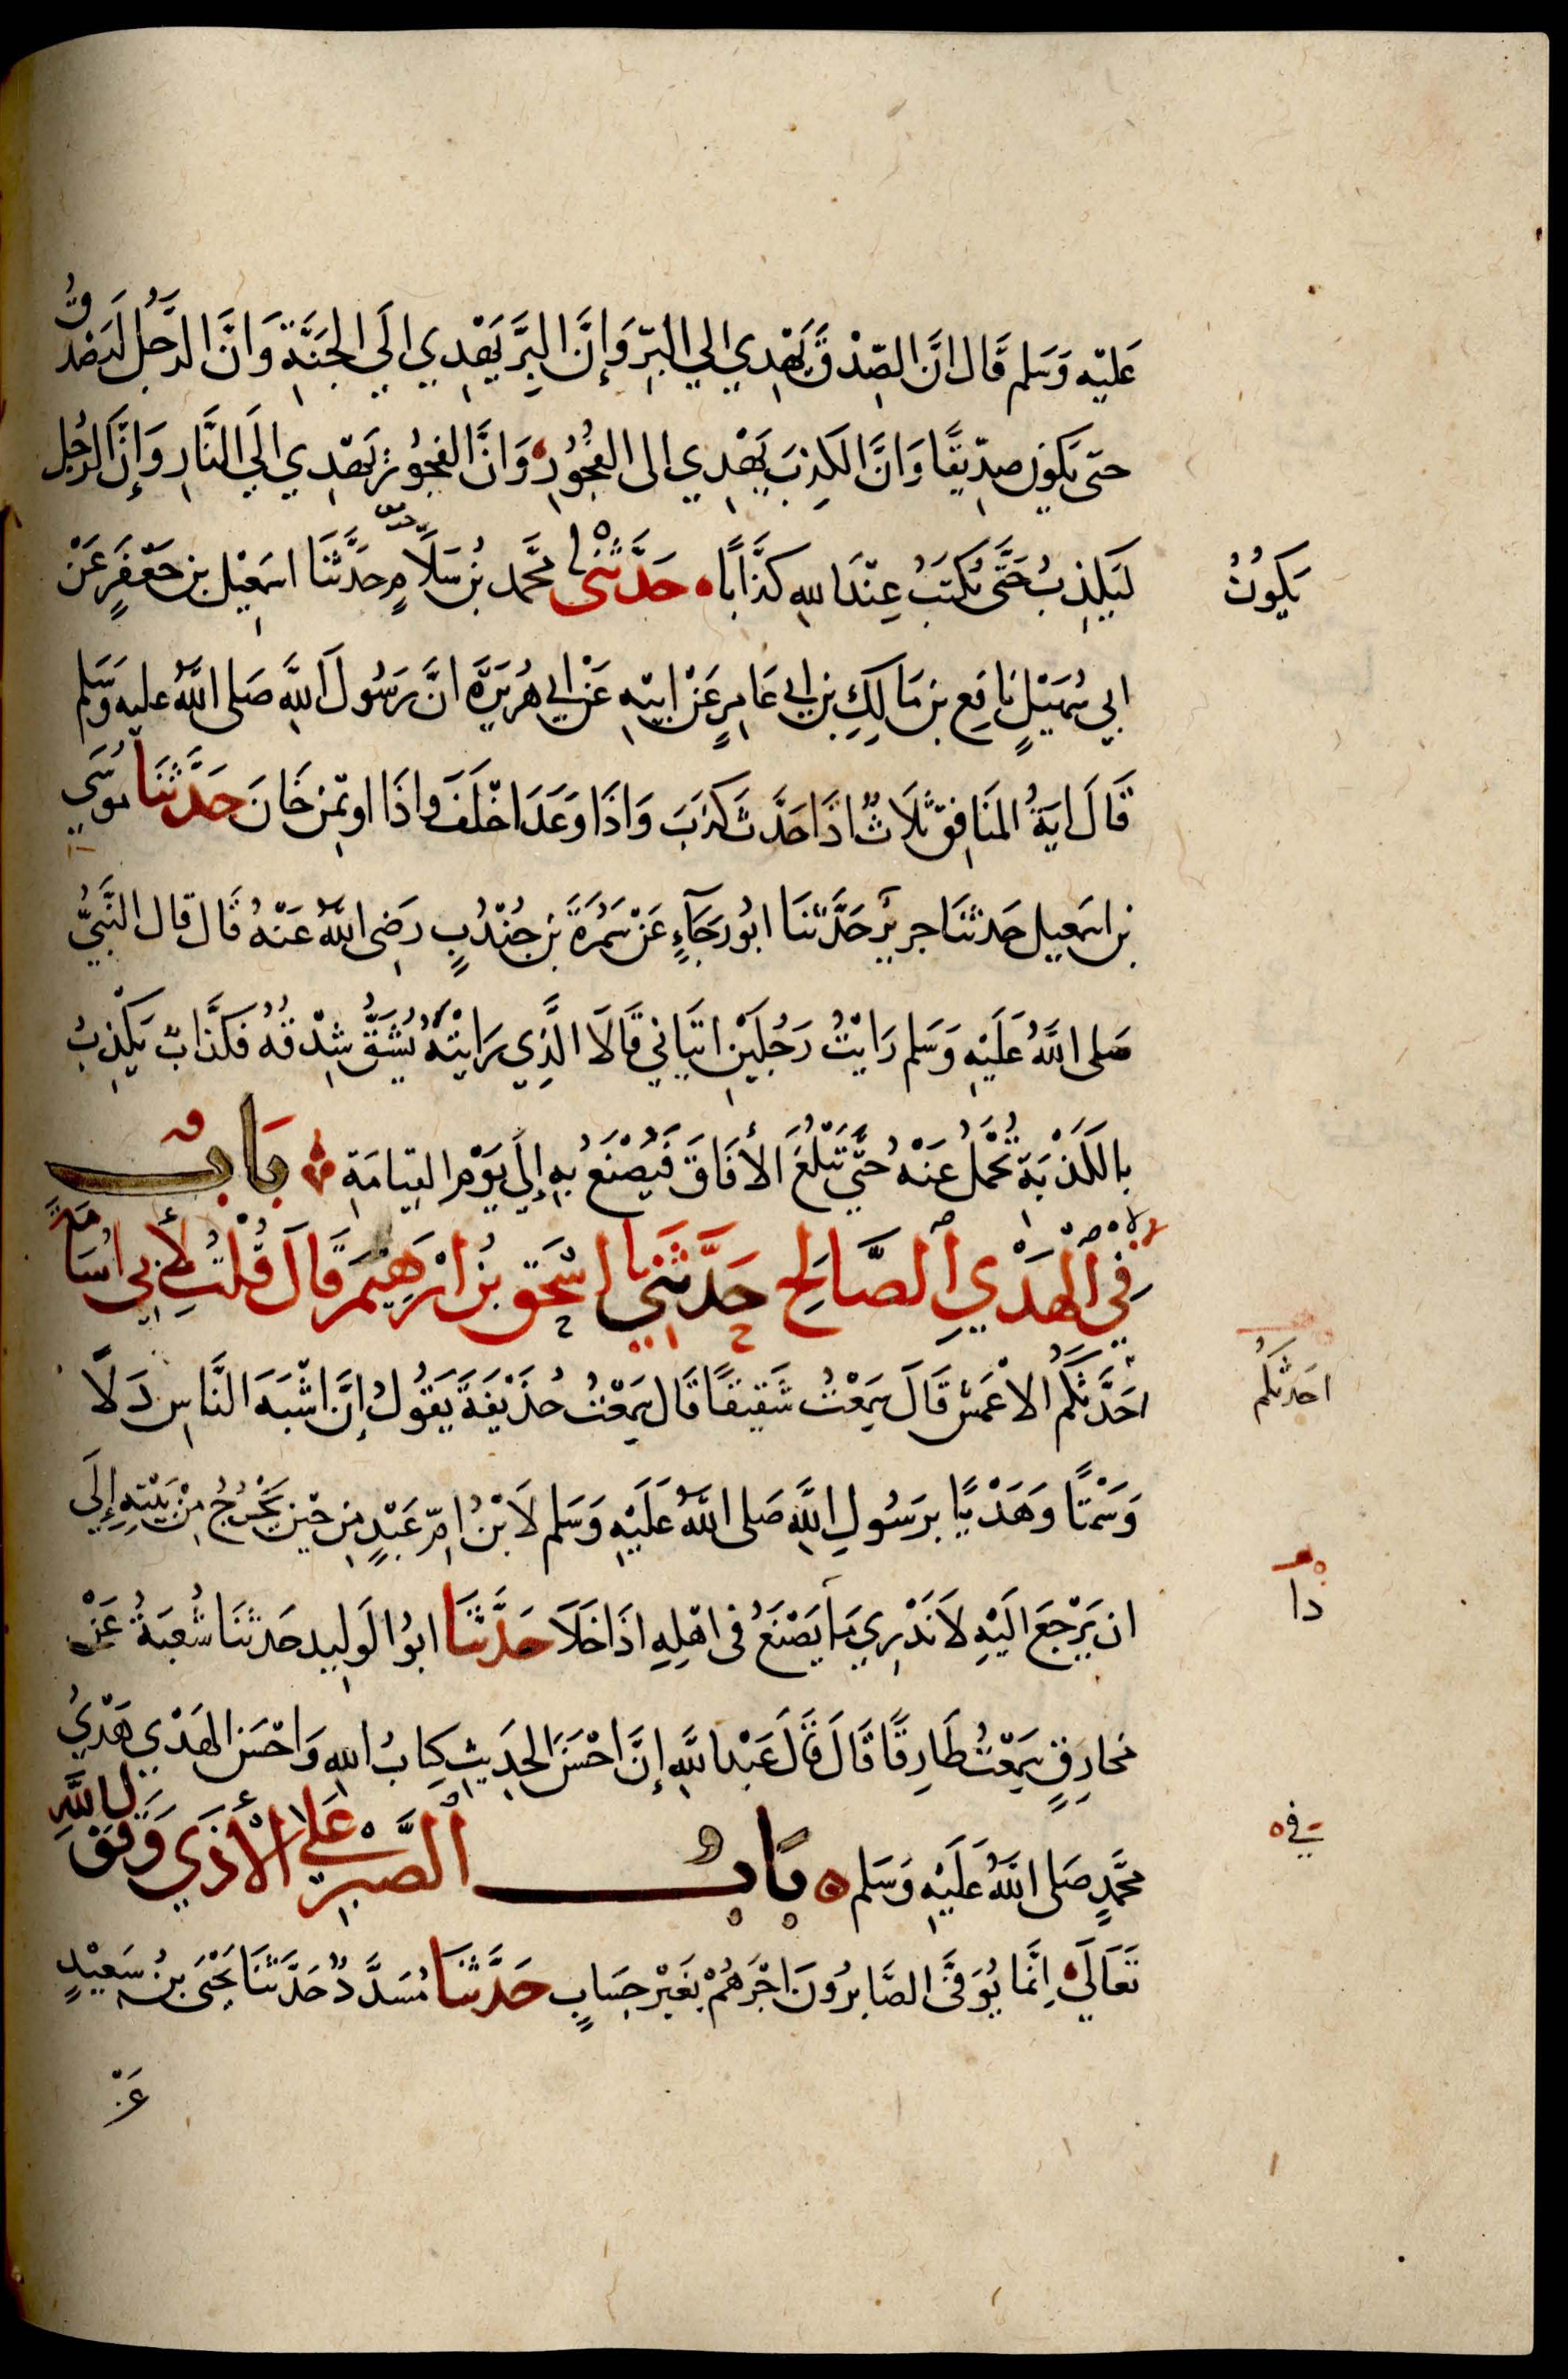 عَليْه وَسَلم قَال انَّ الصِّدْقَ يَهْدِي الي البِرِّ وَإِنَّ البِرَّ يَهْدِي الَي الجَنَّةِ وَانَّ الرَّجُلَ ليَصْدُقُ
حتى يَكُون صِدِّيقًا وَانَّ الكَذِبَ يَهْدِي الى الفُجُورِ وَانَّ الفجُورَ يَهْدِي الَي النَّارِ وَإِنَّ الرَّجُل
لَيَكْذِبُ حَتَّى يُكْتَبَ عِنْدَ اللهِ كَذَّابًا حَدَّثَنَى محَّمد بْنُ سَلَامٍ حَدَّثَنَا اسمَعِيْل بن جَعْفَرٍ عَنْ
يَكُوْنُ
ابي سُهَيْلٍ نَافِع بن مَالِكِ بن ابي عَامِرٍ عَنْ ابِيْهِ عَنْ ابي هُرَيْرَةَ انَّ رَسُولَ اللهِ صَلى اللهُ عليه وَسَلم
قَالَ ايَةُ المنَافِقِ ثَلَاثٌ اذَا حَدَّثَ كذَبَ وَاذَا وَعَدَ اخْلَفَ وَاذَا اوتُمِنَ خَانَ حَدَّثَنَا مُوسَي
بن اسمَعيل حَدثَنَا جرِيْر حَدَّثَنَا ابُو رَجَآءٍ عَنْ سَمُرَةَ بن جُنْدُبٍ رَضِى اللهُ عَنْهُ قَال قال النَّبيُّ
صَلى اللهُ عَلَيْهِ وَسَلم رَايْتُ رَجُلَيْنِ اتيَانِي قَالَا الَّذِي رَايْتَهُ يُشَقُّ شِدْقُهُ فَكَذَّابٌ يَكْذِبُ
بالكَذْبَةِ تُحْمَلُ عَنْهُ حَتَّي تَبْلُغَ الأفَاقَ فَيُصْنَعُ بِهِ إِلَي يَوْمِ القِيامَةِ بَابٌ
في الْهَدْيِ الصَّالِحِ حَدَّثَنِي اسْحَق بْنُ ابْرَهِيْمَ قَالَ قُلْتُ لِأَبِي اُسَامَةَ
احَدَّثَكُمُ الاعْمَش قَالَ سَمِعْتُ شَقِيْقًا قَال سَمِعْتُ حُذَيْفَةَ يَقُولُ إِنَّ اشْبَهَ النَّاسِ دَلًّا
احَدثَكُم
وَسَمْتًا وَهَدْيًا برَسُولِ اللهِ صَلى اللهُ عَلَيْهِ وَسَلم لَابْنُ امِّ عَبْدٍ مِن حِيْن يَخْرُجُ مِنْ بَيْتِهِ إِلَي
ان يَرْجعَ الَيْهِ لَا نَدْرِي مَا يَصْنَعُ فى اهْلِهِ اذَا خَلَا حَدَّثَنَا ابُو الوَلِيد حَدثَنَا شُعْبَةُ عَنْ
دا
مخَارِقٍ سَمِعْتُ طَارِقًا قَالَ قَالَ عَبْد اللهِ إِنَّ احْسَنَ الحدِيثِ كِتَابُ اللهِ وَاحْسَن الهَدْي هَدْيُ
محَمَّدٍ صَلى اللهُ عَلَيْهِ وَسَلم بَابُ الصَّبْرِ عَلَي الأذَي وَقَوْلِ اللهِ
في
تَعَالَي اِنَّمَا يُوَفَّي الصَّابِرُونَ اجْرَهُمْ بغَيْرِ حِسَابٍ حَدَّثَنَا مُسَدَّدٌ حَدَّثَنَا يَحْيَى بْنُ سَعِيْدٍ
عَنْ